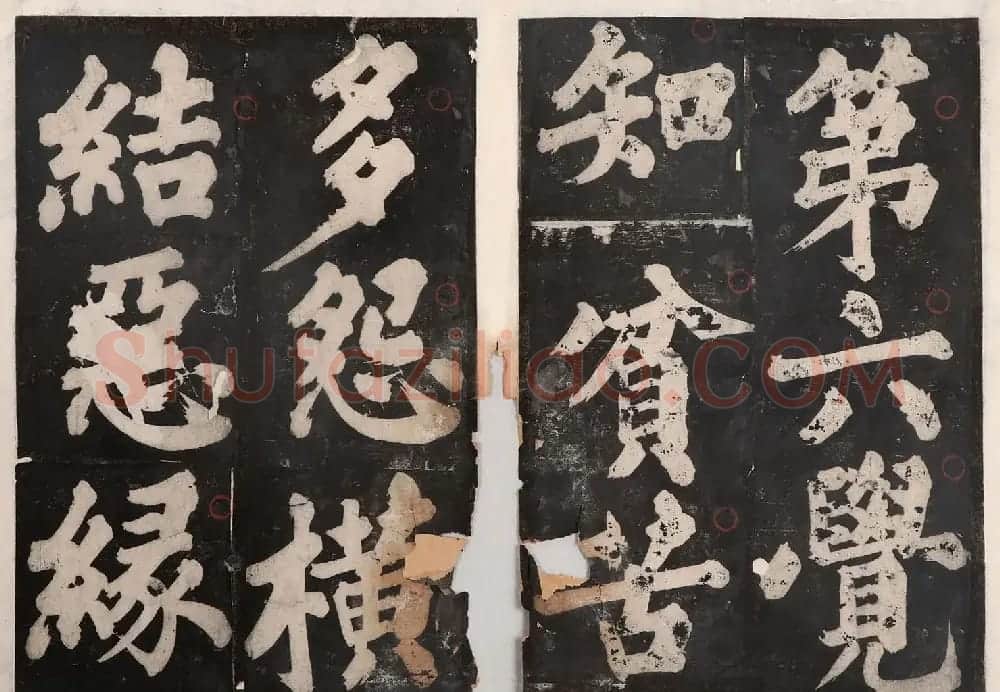 第六覺
知貧苦
多怨橫
結惡緣
Shufaziliao.COM